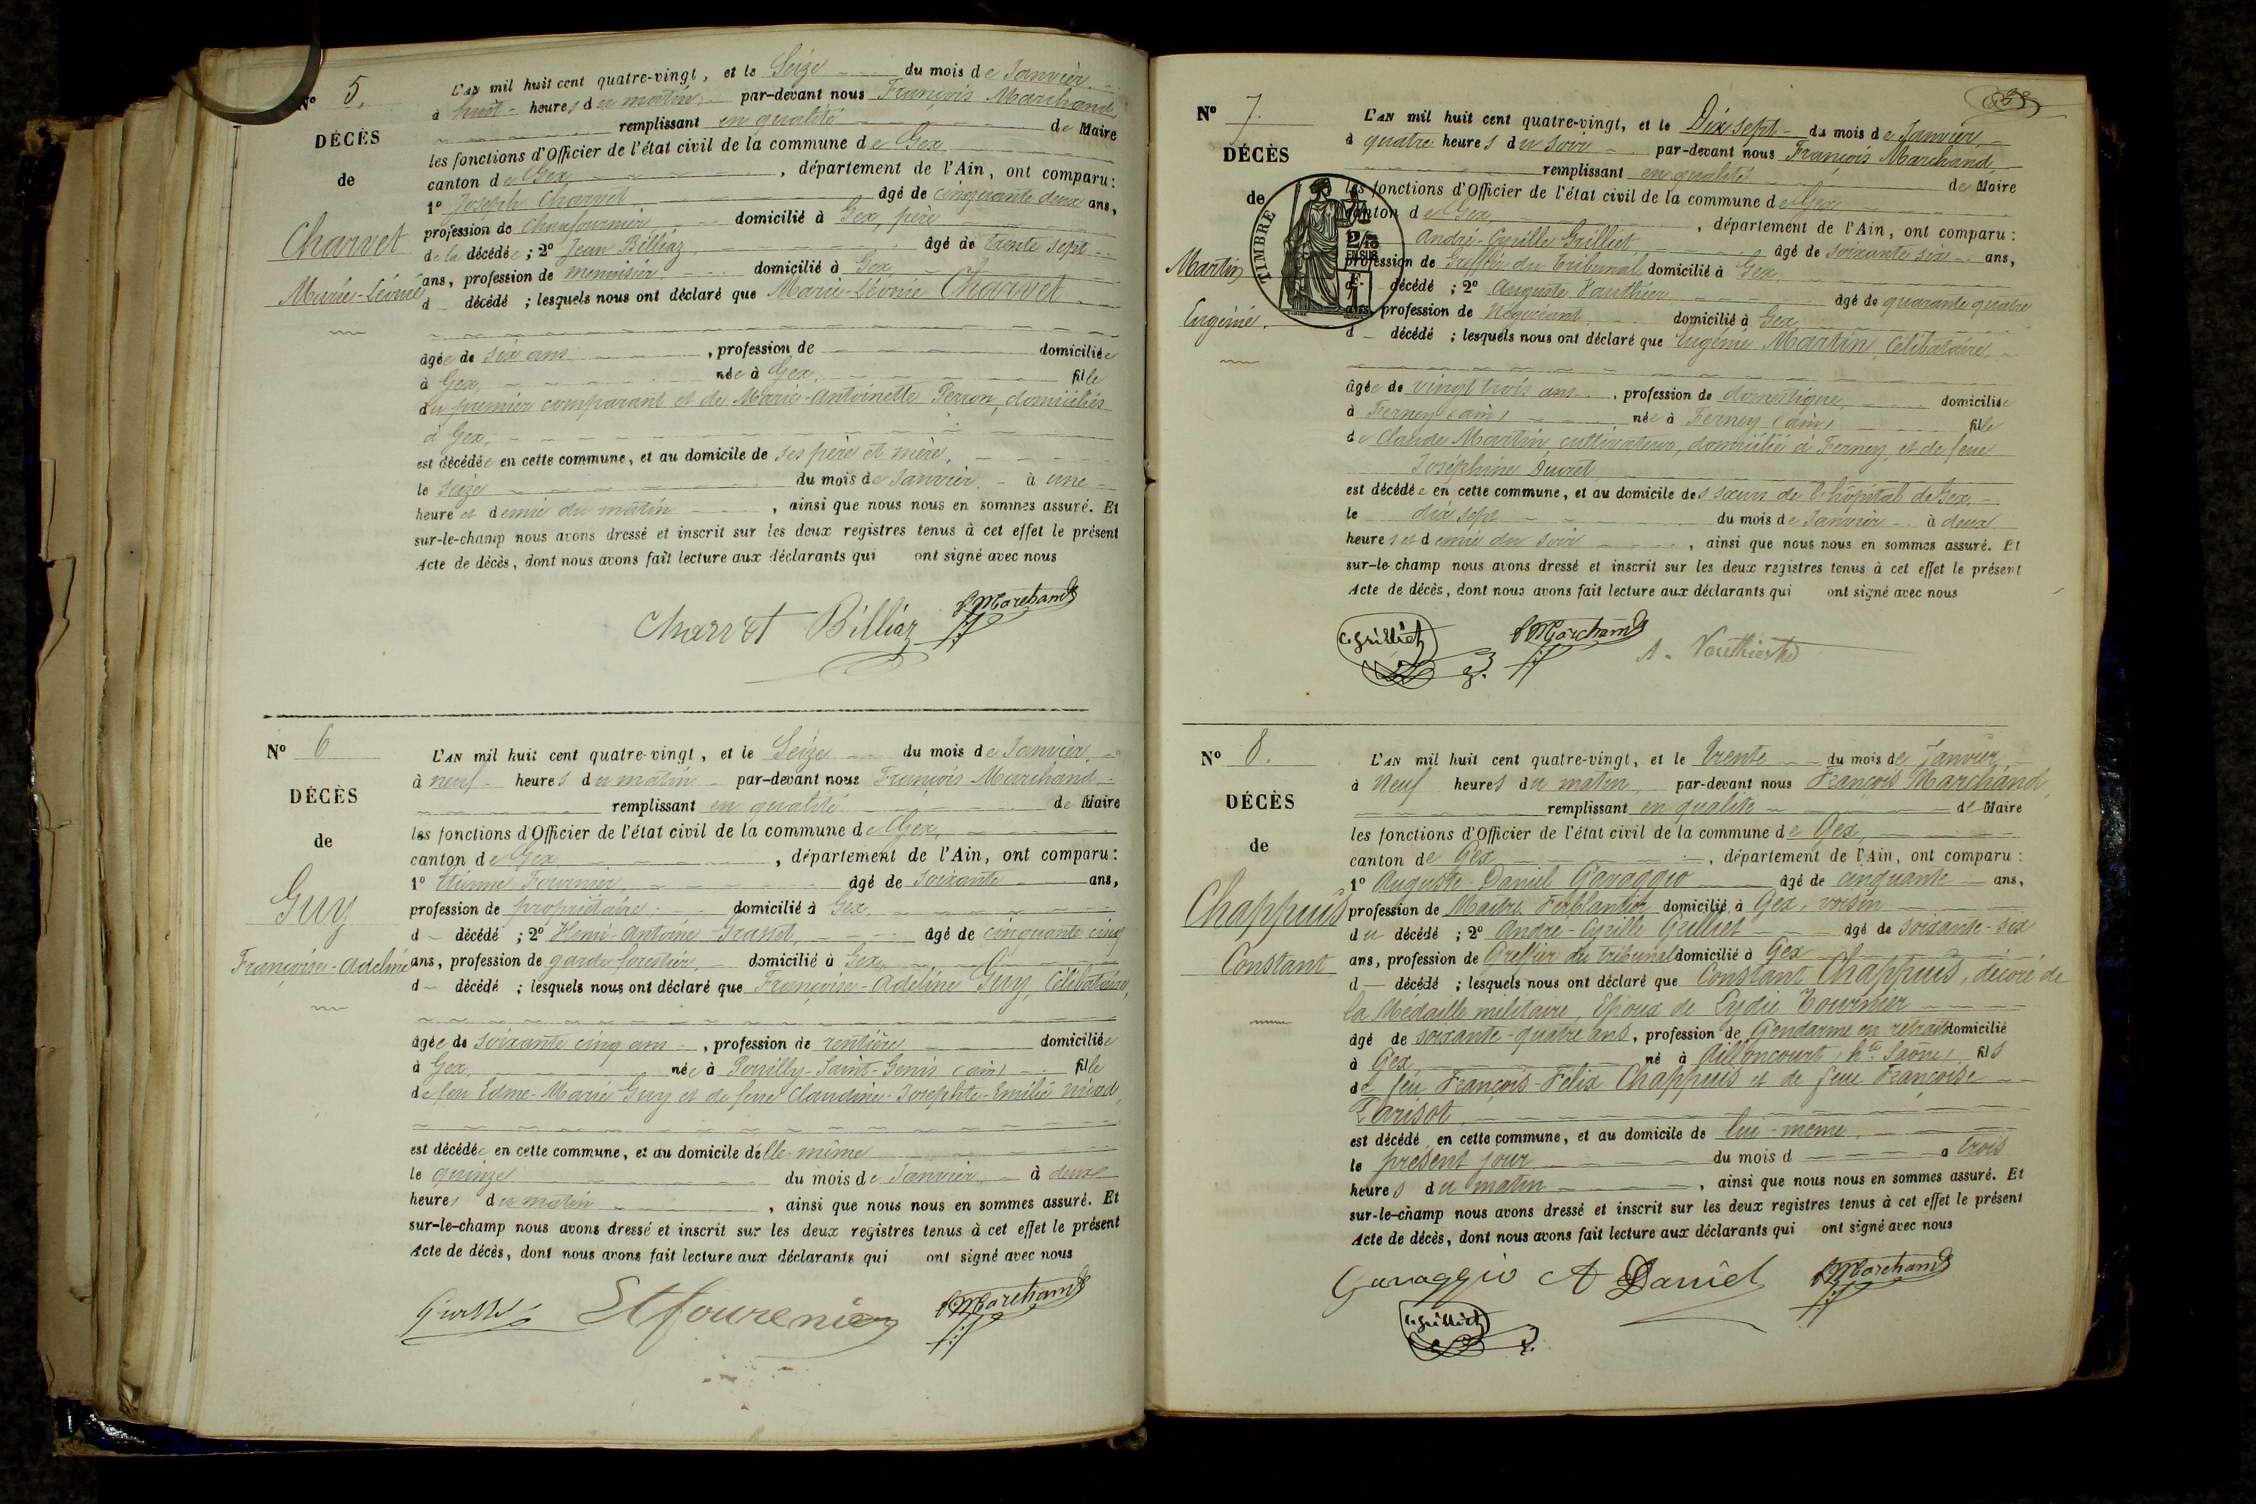 N° 5.
DÉCÈS
de
Charvet
Marie-Léonie
L'AN mil huit cent quatre-vingt, et le Seize du mois de Janvier
à huit heures du matin par-devant nous François Marchand
remplissant en qualité de Maire
les fonctions d'Officier de l'état civil de la commune de Gex
canton de Gex, département de l'Ain, ont comparu:
1° Joseph Charvet âgé de cinquante deux ans,
profession de Chaufournier domicilié à Gex, père
de la décédée; 2° Jean Billiaz âgé de trente sept
ans, profession de menuisier domicilié à Gex,
d décédé; lesquels nous ont déclaré que Marie-Léonie Charvet
âgée de six ans, profession de domiciliée
à Gex, née à Gex, fille
du premier comparant et de Marie-Antoinette Perron, domiciliés
à Gex,
est décédée en cette commune, et au domicile de ses père et mère,
le seize du mois de Janvier à une
heure et demie du matin, ainsi que nous nous en sommes assuré. Et
sur-le-champ nous avons dressé et inscrit sur les deux registres tenus à cet effet le présent
Acte de décès, dont nous avons fait lecture aux déclarants qui ont signé avec nous
Charvet Billiaz Marchand
N° 6
DÉCÈS
de
Guy
Françoise-Adeline
L'AN mil huit cent quatre-vingt, et le Seize du mois de Janvier,
à neuf heures du matin par-devant nous François Marchand
remplissant en qualité de Maire
les fonctions d'Officier de l'état civil de la commune de Gex,
canton de Gex, département de l'Ain, ont comparu:
1° Etienne Fournier, âgé de soixante ans,
profession de propriétaire domicilié à Gex,
d décédé; 2° Henri-Antoine Grasset, âgé de cinquante cinq
ans, profession de garde forestier, domicilié à Gex,
d décédé; lesquels nous ont déclaré que Françoise-Adeline Guy, Célibataire,
âgée de soixante cinq ans, profession de rentière domiciliée
à Gex, née à Pouilly-Saint-Genis (ain) fille
de feu Edme-Marie Guy et de feue Claudine-Josephte-Emilie
est décédée en cette commune, et au domicile d'elle-même
le quinze du mois de Janvier, à deux
heures du matin, ainsi que nous nous en sommes assuré. Et
sur-le-champ nous avons dressé et inscrit sur les deux registres tenus à cet effet le présent
Acte de décès, dont nous avons fait lecture aux déclarants qui ont signé avec nous
Grasset Et fourenier Marchand
N° 7.
DÉCÈS
de
Martin
Eugénie.
TIMBRE
2/10
EN SUS
L'AN mil huit cent quatre-vingt, et le Dix sept du mois de Janvier,
à quatre heures du soir par-devant nous François Marchand,
remplissant en qualité de Maire
les fonctions d'Officier de l'état civil de la commune de Gex
canton de Gex, département de l'Ain, ont comparu:
André-Cyrille Grilliet, âgé de soixante six ans,
profession de Greffier du Tribunal domicilié à Gex
décédé; 2° Auguste Vauthier âgé de quarante quatre
ans, profession de Négociant domicilié à Gex,
d décédé; lesquels nous ont déclaré que Eugénie Martin, Célibataire,
âgée de vingt trois ans, profession de domestique, domiciliée
à Ferney (ain) née à Ferney (ain) fille
de Claude Martin, cultivateur, domicilié à Ferney, et de feue
Joséphine
est décédée en cette commune, et au domicile des sœurs de l'hôpital de Gex,
le dix sept du mois de Janvier à deux
heures et demie du soir, ainsi que nous nous en sommes assuré. Et
sur-le-champ nous avons dressé et inscrit sur les deux registres tenus à cet effet le présent
Acte de décès, dont nous avons fait lecture aux déclarants qui ont signé avec nous
C. Grilliet Marchand A. Vauthier
N° 8.
DÉCÈS
de
Chappuis
Constant
L'AN mil huit cent quatre-vingt, et le trente du mois de Janvier
à Neuf heures du matin, par-devant nous François Marchand,
remplissant en qualité de Maire
les fonctions d'Officier de l'état civil de la commune de Gex,
canton de Gex, département de l'Ain, ont comparu:
1° Auguste-Daniel Gavaggio âgé de cinquante ans,
profession de Maître Ferblantier domicilié à Gex, voisin
du décédé; 2° André-Cyrille Grilliet âgé de soixante-six
ans, profession de Greffier du tribunal domicilié à Gex
d décédé; lesquels nous ont déclaré que Constant Chappuis, décoré de
la Médaille militaire, Epoux de Lydie Tournier
âgé de soixante-quatre ans, profession de Gendarme en retraite domicilié
à Gex né à Ailloncourt (hte Saône) fils
de feu François-Felix Chappuis et de feue Françoise
Parisot
est décédé en cette commune, et au domicile de lui-même,
le présent jour du mois d à trois
heures du matin, ainsi que nous nous en sommes assuré. Et
sur-le-champ nous avons dressé et inscrit sur les deux registres tenus à cet effet le présent
Acte de décès, dont nous avons fait lecture aux déclarants qui ont signé avec nous
Gavaggio A Daniel Marchand
C. Grilliet